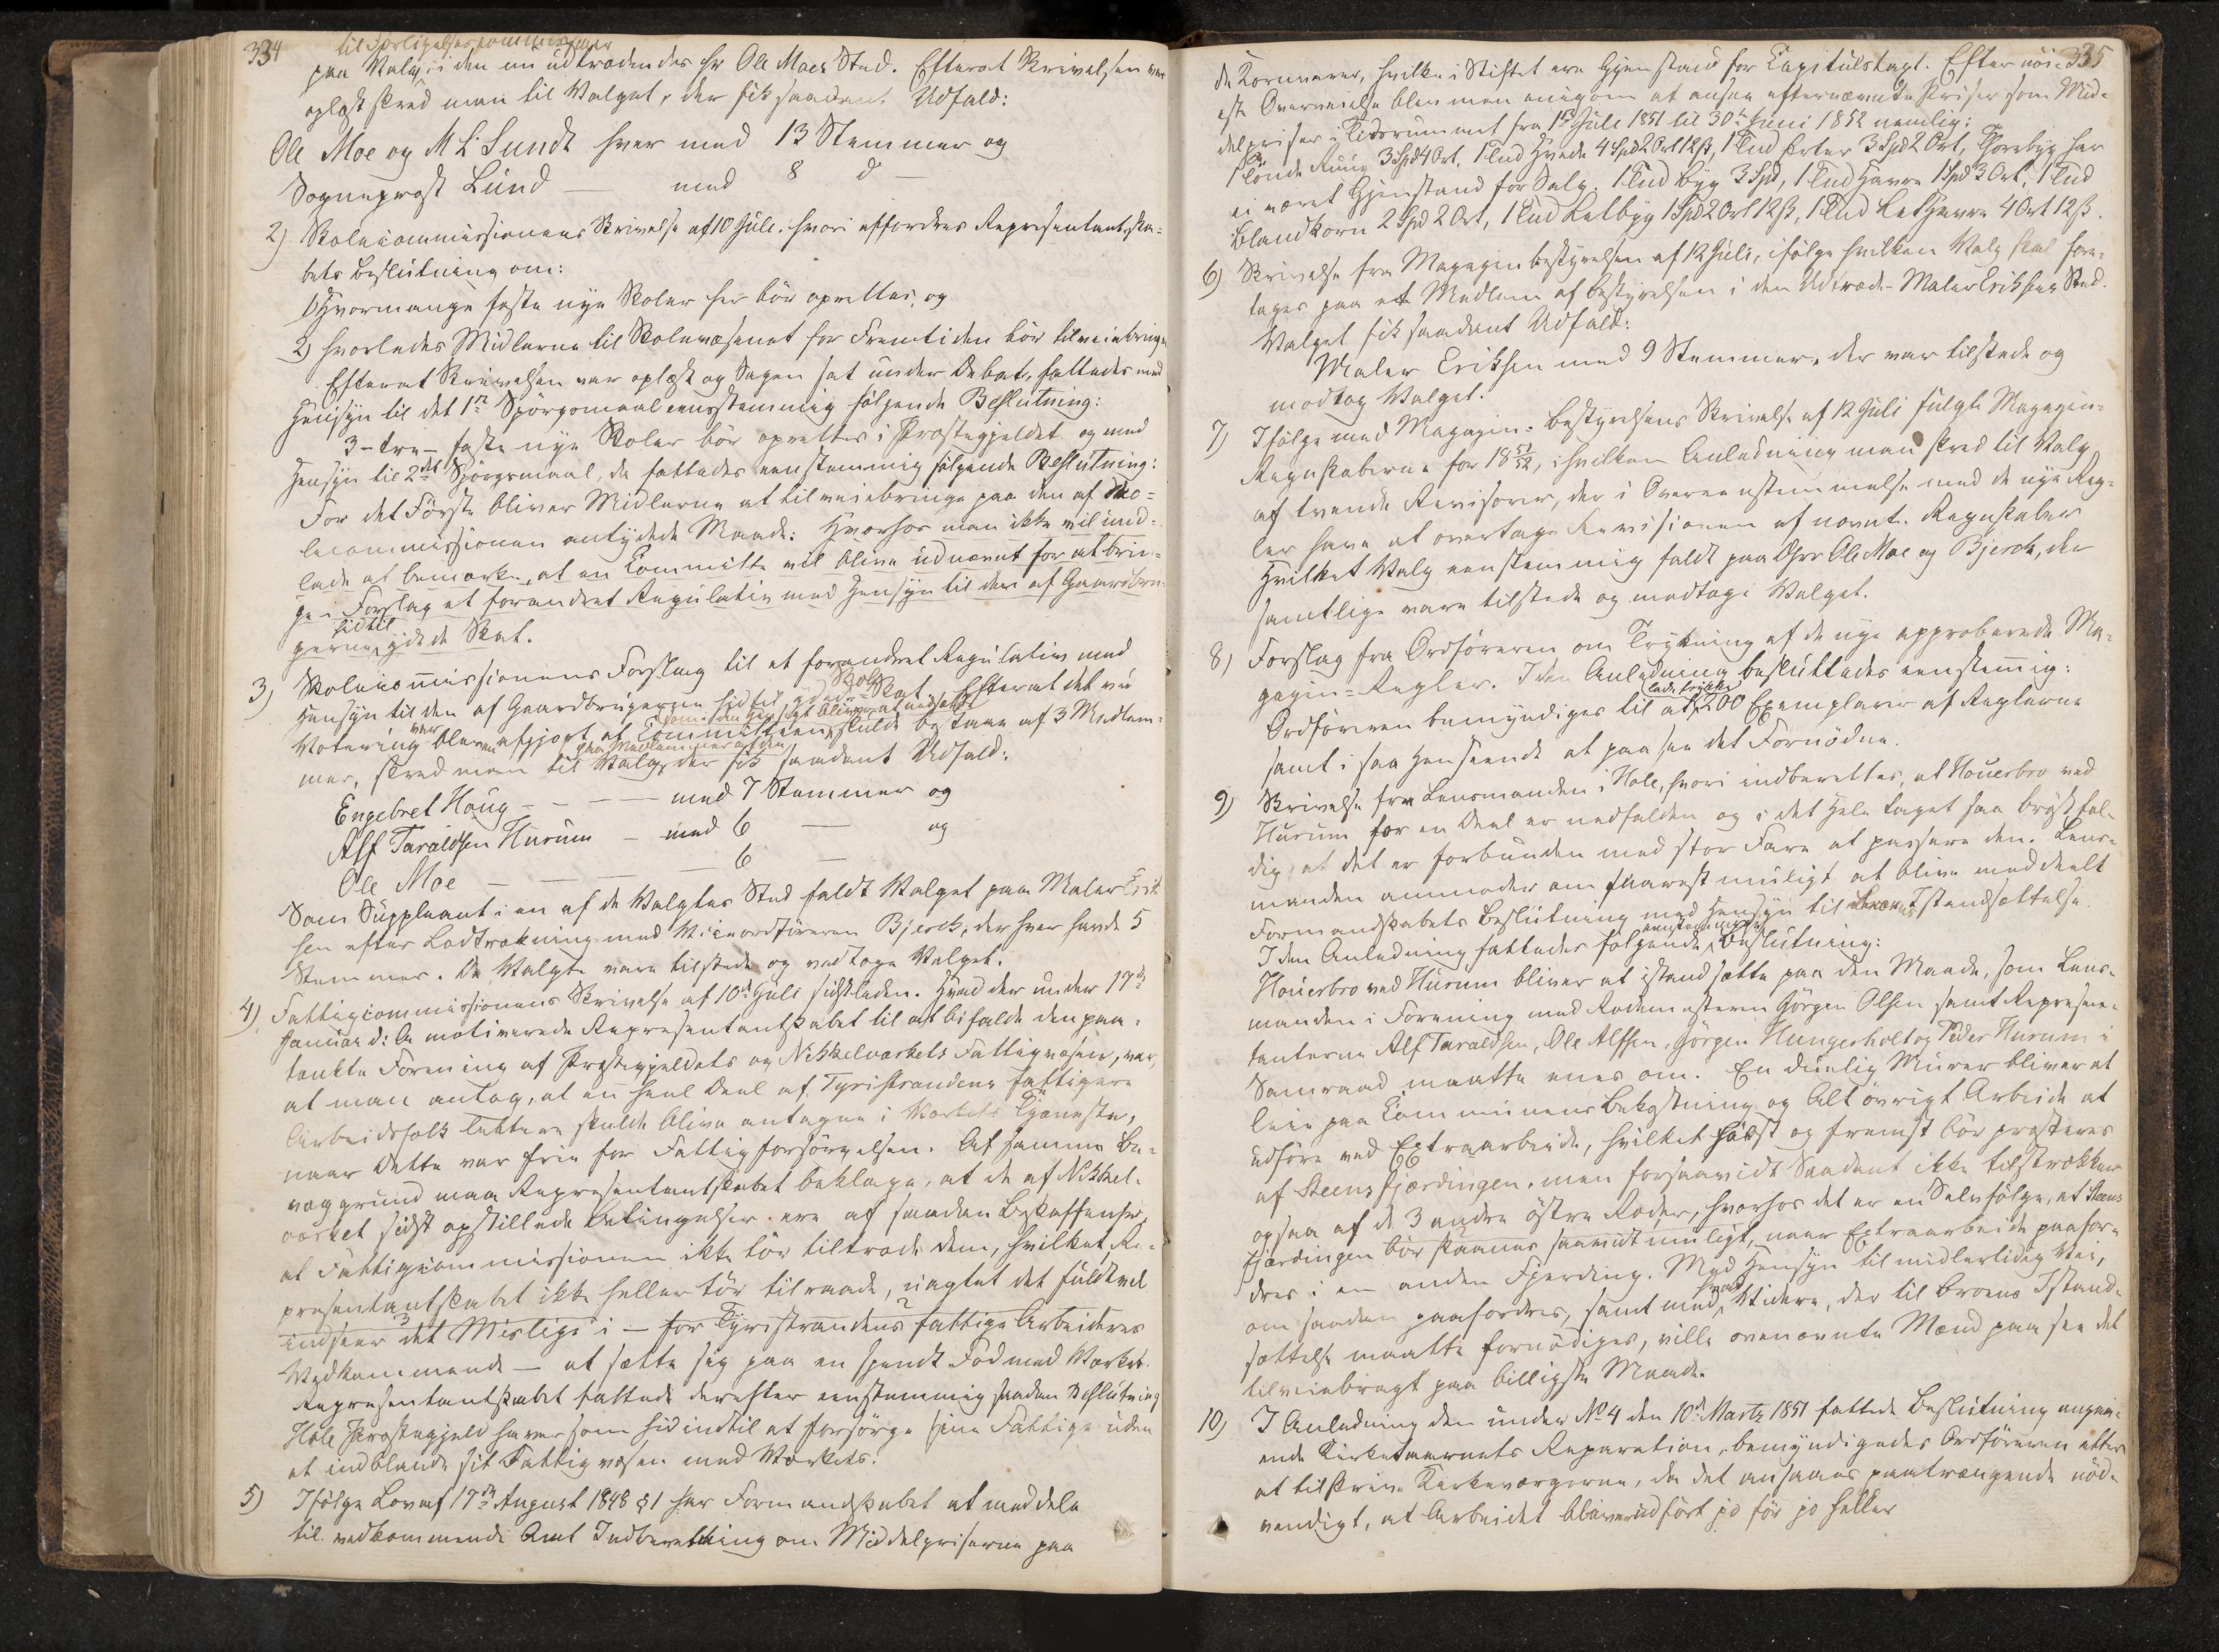 334
til Forligelsescommissær
paa Valg, i den nu udtrædendes Hr Ole Moes Sted. Efterat Skrivelsen var
oplæst skred man til Valget, der fik saadant Udfald:
Ole Moe og M L Sundt hver med 13 Stemmer og
Sogneprost Lund — med 8 d —
2) Skolecommissionens Skrivelse af 10 Juli, hvori affordres Repræsentantska-
bets Beslutning om:
1) Hvormange faste nye Skoler her bör oprettes, og
2) hvorledes Midlerne til Skolevæsenet for Fremtiden bör tilveiebringes
Efterat Skrivelsen var oplæst og Sagen sat under Debat, fattedes med
Hensyn til det 1ste Spörgsmaal eenstemmig fölgende Beslutning:
3 – tre – faste nye Skoler bör oprettes i Præstegjeldet og med
Hensyn til 2det Spörgsmaal, da fattedes eenstemmig fölgende Beslutning:
For det Förste bliver Midlerne at tilveiebringe paa den af Sko-
lecommissionen antydede Maade: Hvorhos man ikke vil und-
lade at bemærke, at en Committe vil blive udnævnt for at brin-
ge i Forslag et forandret Regulativ med Hensyn til den af Gaardbru-
gerne hidtil ydede Skat.
3) Skolecommissionens Forslag til et forandret Regulativ med
Hensyn til den af Gaardbrugerne hidtil ydede Skole-Skat. Efterat det ved
Votering var bleven afgjort at Committeen, som i den Hensigt bliver at nedsætte skulde bestaae af 3 Medlem-
mer, skred man til Valg paa Medlemmer af den, der fik saadant Udfald:
Engebret Houg — — — med 7 Stemmer og
Alf Taraldsen Hurum — med 6 — og
Ole Moe — — — 6 —
Som Suppleant i en af de Valgtes Sted faldt Valget paa Maler Erik-
sen efter Lodtrækning med Viceordföreren Bjerck, der hver havde 5
Stemmer. De Valgte vare tilstede og vedtoge Valget.
4) Fattigcommissionens Skrivelse af 10de Juli sidstleden. Hvad der under 17de
Januar d: A motiverede Repræsentantskabet til at bifalde den paa-
tænkte Forening af Præstegjeldets og Nikkelværkets Fattigvæsen, var,
at man antog, at en heel Deel af Tyristrandens fattigere
Arbeidsfolk lettere skulde blive antagne i Værkets Tjeneste,
naar Dette var frie for Fattigforsörgelsen. Af samme Be-
væggrund maa Repræsentantskabet beklage, at de af Nikkel-
værket sidst opstillede Betingelser ere af saadan Beskaffenhed,
at Fattigcommissionen ikke tör tiltræde dem, hvilket Re-
præsentantskabet ikke heller tör tilraade, uagtet det fuldtvel
indseer det Mislige i — for Tyristrandens fattige Arbeideres
Vedkommende — at sætte sig paa en spendt Fod med Værket.
Repræsentantskabet fattede derefter eenstemmig saadan Beslutning
Hole Præstegjeld haver som hidindtil at forsörge sine Fattige uden
at indblande sit Fattigvæsen med Værkets.
5) Ifölge Lov af 17de August 1848 § 1 har Formandskabet at meddele
til vedkommende Amt Indberetning om Middelpriserne paa
335
de Kornvarer, hvilke i Stiftet ere Gjenstand for Capitulstaxt. Efter nöi-
este Overveielse blev man enig om at ansee efternævnte Priser som Mid-
delpriser i Tidsrummet fra 1ste Juli 1851 til 30te Juni 1852 nemlig:
1 Tönde Rug 3 Spd 4 Ort, 1 Tnd Hvede 4 Spd 2 Ort 12 ß, 1 Tnd Erter 3 Spd 2 Ort, Thorebyg har
ei været Gjenstand for Salg. 1 Tnd Byg 3 Spd, 1 Tnd Havre 1 Spd 3 Ort, 1 Tnd
Blandkorn 2 Spd 2 Ort, 1 Tnd Letbyg 1 Spd 2 Ort 12 ß, 1 Tnd Lethavre 4 Ort 12 ß.
6) Skrivelse fra Magazinbestyrelsen af 12 Juli, ifölge hvilken Valg skal fore-
tages paa et Medlem af Bestyrelsen i den Udtræd- Maler Eriksens Sted.
Valget fik saadant Udfald:
Maler Eriksen med 9 Stemmer, der var tilstede og
modtog Valget.
7) Ifölge med Magazin-Bestyrelsens Skrivelse af 12 Juli fulgte Magazin-
Regnskaberne for 1851/52, i hvilken Anledning man skred til Valg
af trende Revisorer, der i Overeenstemmelse med de nye Reg-
ler have at overtage Revisionen af nævnte Regnskaber
Hvilket Valg eenstemmig faldt paa Ole Moe og Bjerck, der
samtlige vare tilstede og modtoge Valget.
8) Forslag fra Ordföreren om Trykning af de nye approberede Ma-
gazin-Regler. I den Anledning besluttedes eenstemmig:
Ordföreren bemyndiges til at lade trykke 200 Exemplarer af Reglerne
samt i saa Henseende at paasee det Fornödne.
9) Skrivelse fra Lensmanden i Hole, hvori indberettes, at Houerbro ved
Hurum for en Deel er nedfalden og i det Hele taget saa bröstfæl-
dig, at det er forbunden med stor Fare at passere den. Lens-
manden anmoder om snarest muligt at blive meddeelt
Formandskabets Beslutning med Hensyn til Broens Istandsættelse.
I den Anledning fattedes fölgende eenstemmige Beslutning:
Houerbro ved Hurum bliver at istandsætte paa den Maade, som Lens-
manden i Forening med Rodemesteren Jörgen Olsen samt Repræsen-
tanterne Alf Taraldsen, Ole Alfsen, Jörgen Hungerholt og Peder Hurum i
Samraad maatte enes om. En duelig Murer bliver at
leie paa Communens Bekostning og Alt övrigt Arbeide at
udföre ved Extraarbeide, hvilket först og fremst bör præsteres
af Steensfjærdingen, men forsaavidt Saadant ikke tilstrækker
ogsaa af de 3 andre östre Roder, hvorhos det er en Selvfölge, at Steens
fjærdingen bör skaanes saavidt muligt, naar Extraarbeide paafor-
dres i en anden Fjerding. Med Hensyn til midlertidig Vei,
om saadan paafordres, samt med hvad Videre, der til Broens Istand-
sættelse maatte fornödiges, ville ovennævnte Mænd paasee det
tilveiebragt paa billigste Maade.
10) I Anledning den under No 4 den 10de Martz 1851 fattede Beslutning angaa-
ende Kirketaarnets Reparation, bemyndigedes Ordföreren atter
at tilskrive Kirkeværgerne, da det ansaaes paatrængende nöd-
vendigt, at Arbeidet bliver udfört jo för jo heller